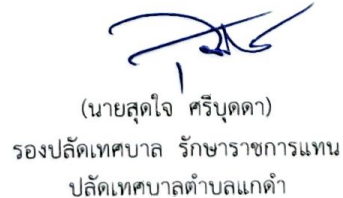 (นายสุดใจ ศรีบุดดา)
รองปลัดเทศบาล รักษาราชการแทน
ปลัดเทศบาลตำบลแกดำ